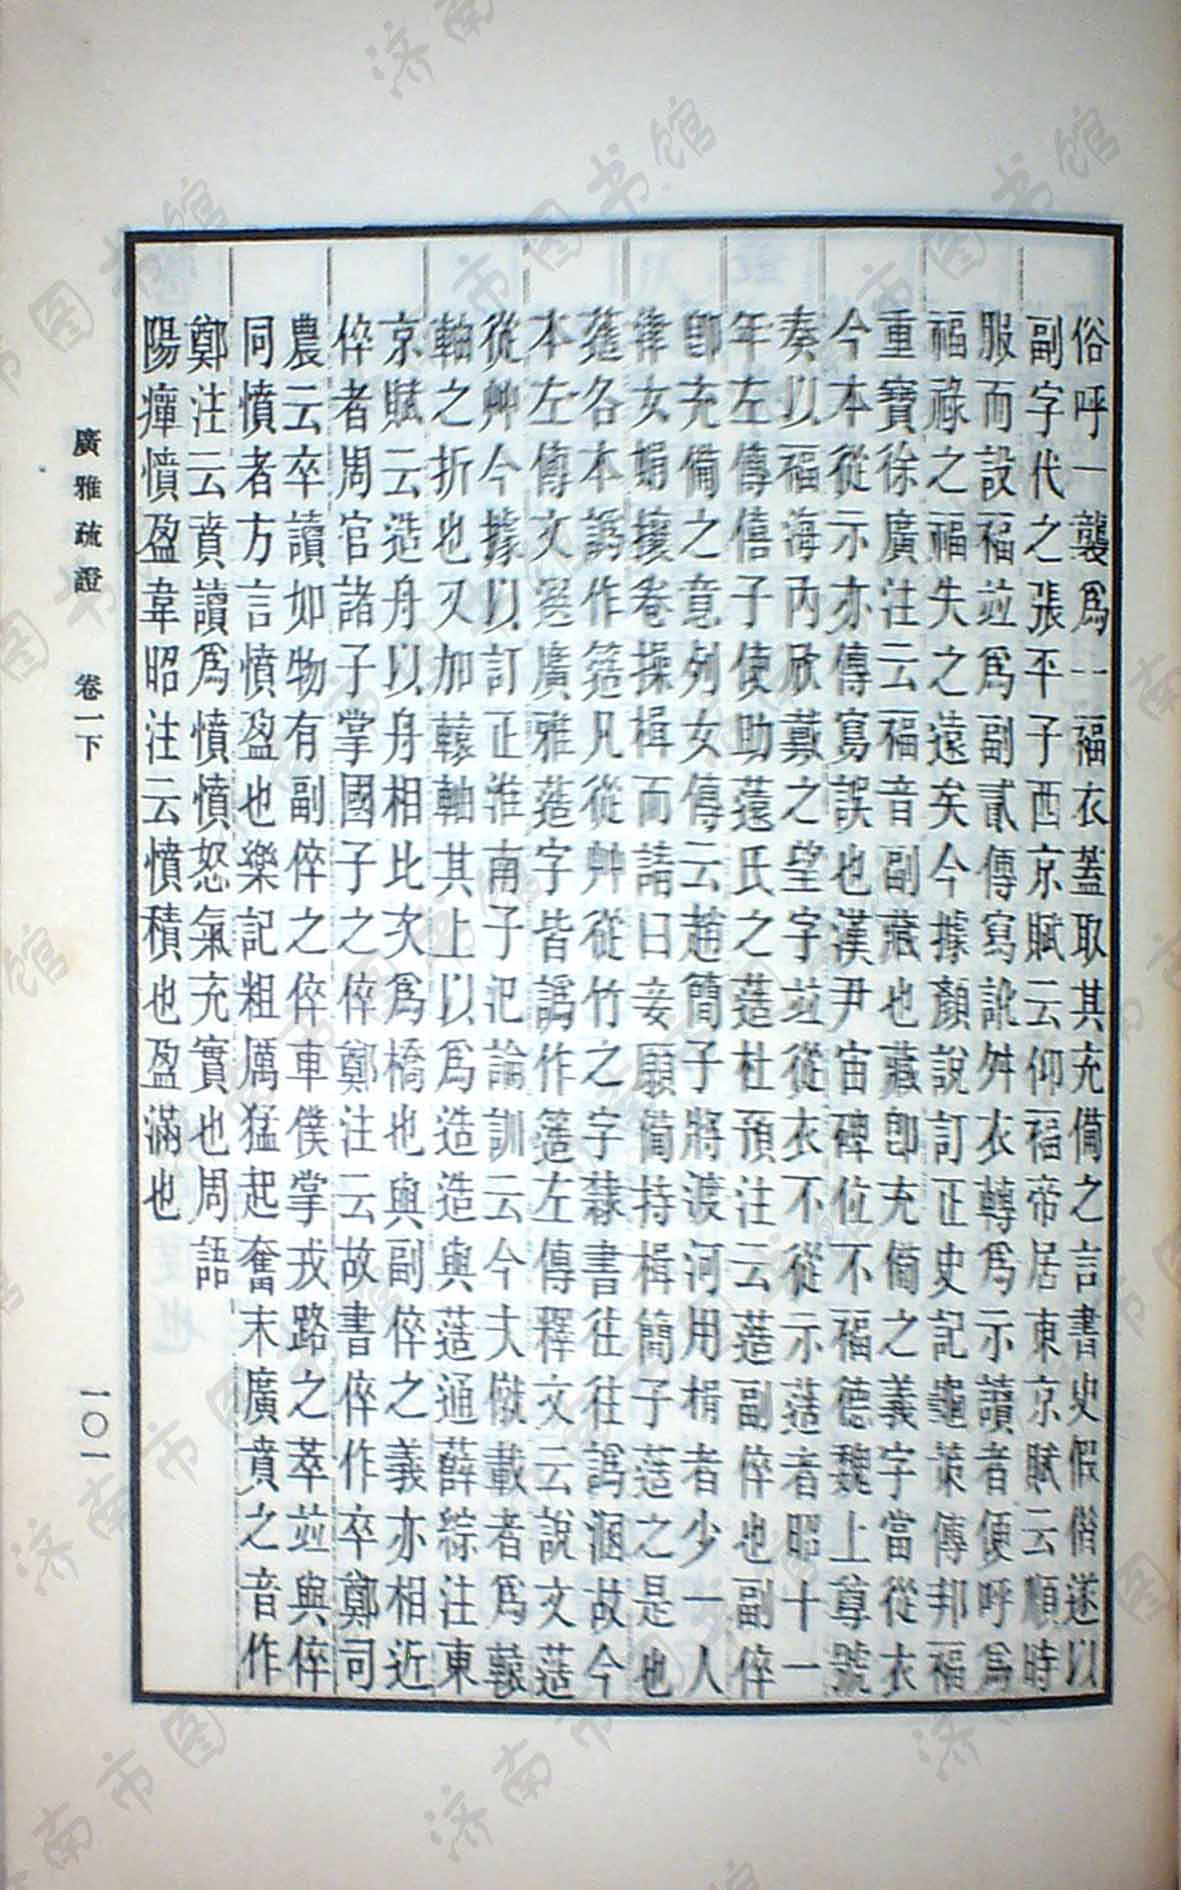 俗呼一襲爲一福衣蓋取其充僃之言書史假借遂以
副字代之張平子西京賦云仰福帝居東京賦云順時
服而設福竝爲副貳傳寫訛舛衣轉爲示讀者便呼爲
福祿之福失之遠矣今據顏說訂正史記龜策傳邦福
重寶徐廣注云福音副藏也藏卽充僃之義字當從衣
今本從示亦傳寫誤也漢尹宙碑位不福德魏上尊號
奏以福海內欣戴之望字竝從衣不從示䔏者昭十一
年左傳僖子使助薳氏之䔏杜預注云䔏副倅也副倅
卽充備之意列女傳云趙簡子將渡河用楫者少一人
津女娟攘卷操楫而請曰妾願備持楫簡子䔏之是也
䔏各本譌作簉凡從艸從竹之字隸書往往譌溷故今
本左傳文選廣雅䔏字皆譌作簉左傳釋文云說文䔏
從艸今據以訂正淮南子氾論訓云今大僦載者爲轅
軸之折也又加轅軸其上以爲造造與䔏通薛綜注東
京賦云造舟以舟相比次爲橋也與副倅之義亦相近
倅者周官諸子掌國子之倅鄭注云故書倅作卒鄭司
農云卒讀如物有副倅之倅車僕掌戎路之萃竝與倅
同憤者方言憤盈也樂記粗厲猛起奮末廣賁之音作
鄭注云賁讀爲憤憤怒氣充實也周語
陽癉憤盈韋昭注云憤積也盈滿也
廣雅疏證 卷一下
一〇一
济南市图书馆